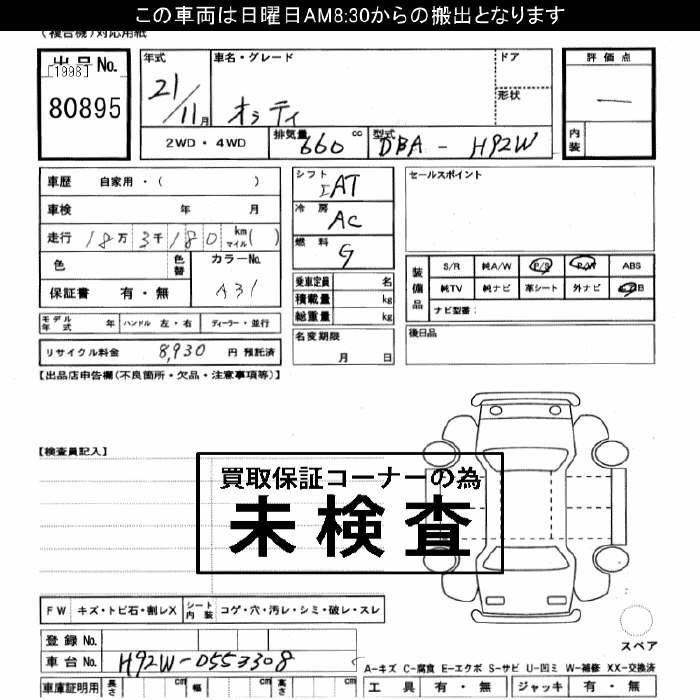 この車両は日曜日AM8:30からの搬出となります
(複合機)対応用紙
出品No.
[1998]
80895
年式
21/11月
車名・グレード
オッティ
ドア
形状
評価点
―
内装
2WD・4WD
排気量 660 cc
型式 DBA - H92W
車歴 自家用・( )
車検 年 月
走行 18万3千180 km マイル( )
色 色替 カラーNo.
保証書 有・無 A31
モデル年式 年 ハンドル 左・右 ディーラー・並行
リサイクル料金 8,930 円 預託済
シフト AT
冷房 AC
燃料 G
乗車定員 名
積載量 kg
総重量 kg
名変期限
月 日
セールスポイント
装備品
S/R 純A/W P/S P/W ABS
純TV 純ナビ 革シート 外ナビ B
ナビ型番:
後日品
【出品店申告欄(不良箇所・欠品・注意事項等)】
【検査員記入】
買取保証コーナーの為
未検査
FW キズ・トビ石・割レX シート内装 コゲ・穴・汚レ・シミ・破レ・スレ
スペア
登録No.
車台No. H92W-0553308
A-キズ C-腐食 E-エクボ S-サビ U-凹ミ W-補修 XX-交換済
車庫証明用 長さ cm 幅 cm 高さ cm
工具 有・無 ジャッキ 有・無